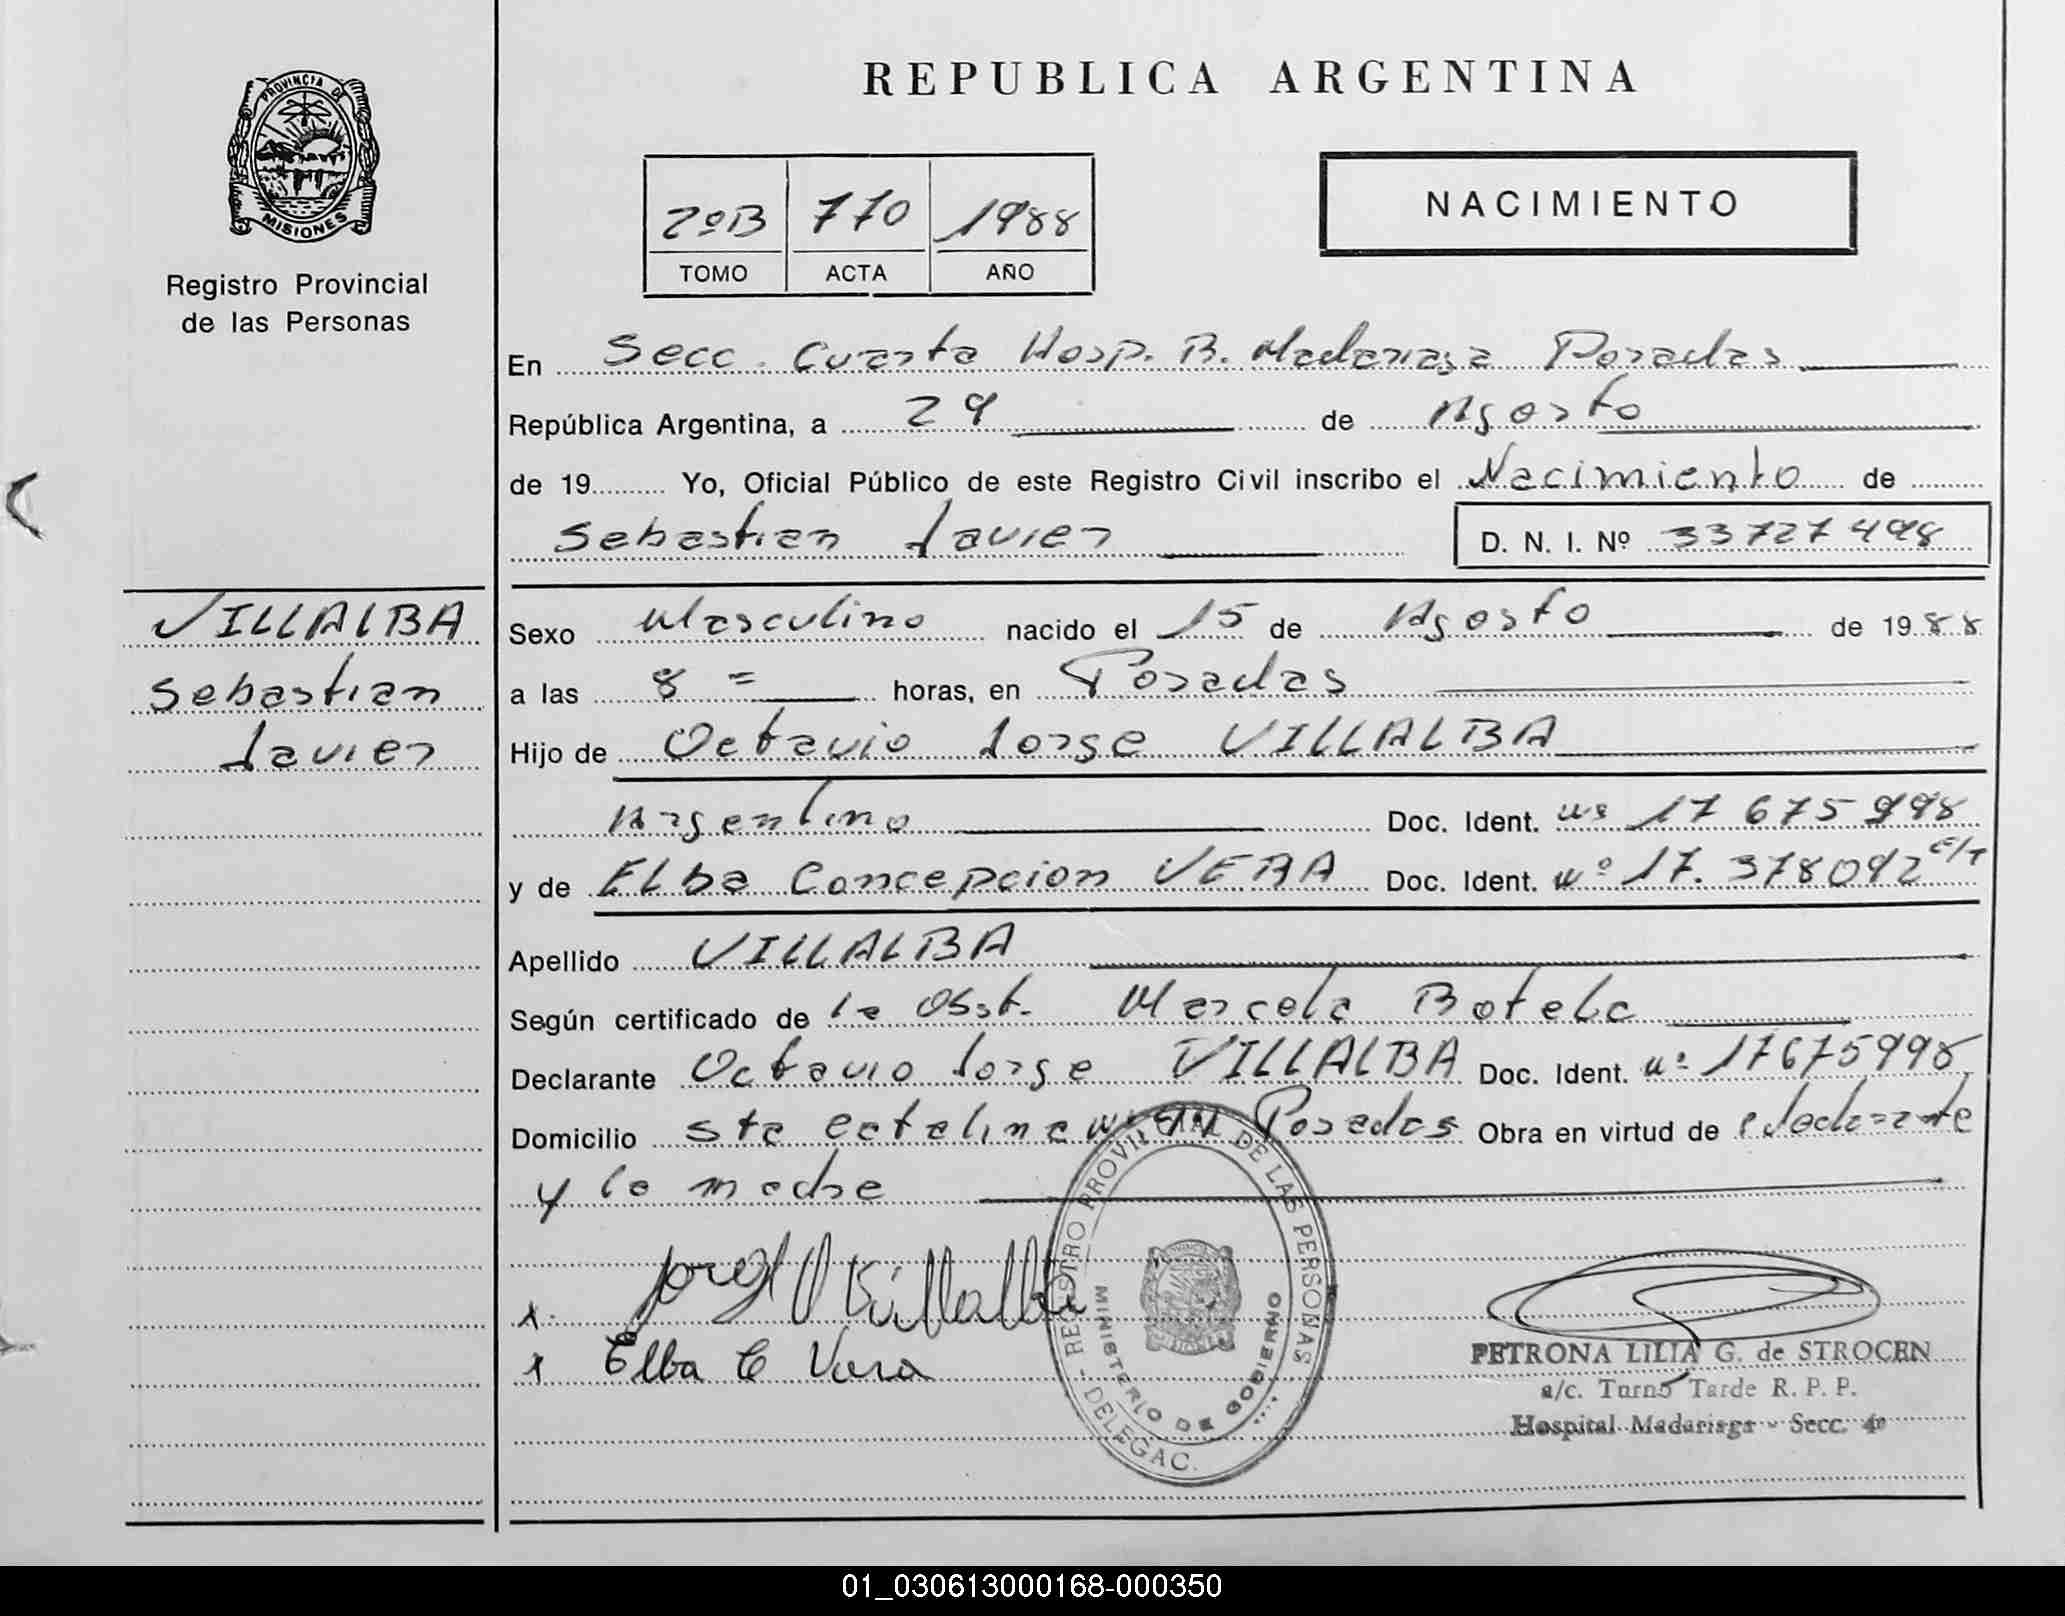 PROVINCIA DE
MISIONES
Registro Provincial
de las Personas
VILLALBA
Sebastian
Javier
REPUBLICA ARGENTINA
2ºB 770 1988
TOMO ACTA AÑO
NACIMIENTO
En Secc. Cuarta Hosp. R. Madariaga Posadas
República Argentina, a 29 de Agosto
de 19 Yo, Oficial Público de este Registro Civil inscribo el Nacimiento de
Sebastian Javier D. N. I. Nº 33727498
Sexo Masculino nacido el 15 de Agosto de 1988
a las 8 = horas, en Posadas
Hijo de Octavio Jorge VILLALBA
Argentino Doc. Ident. Nº 17 675 998
y de Elba Concepcion VERA Doc. Ident. Nº 17.378092 E/T
Apellido VILLALBA
Según certificado de la Obst. Marcela Botelo
Declarante Octavio Jorge VILLALBA Doc. Ident. Nº 17675998
Domicilio Sta Catalina Posadas Obra en virtud de declarante
y la madre
x. Jorge O Villalba
x Elba C Vera
REGISTRO PROVINCIAL DE LAS PERSONAS - DELEGAC.
MINISTERIO DE GOBIERNO
PETRONA LILIA G. de STROCEN
a/c. Turno Tarde R. P. P.
Hospital Madariaga - Secc. 4ª
01_030613000168-000350